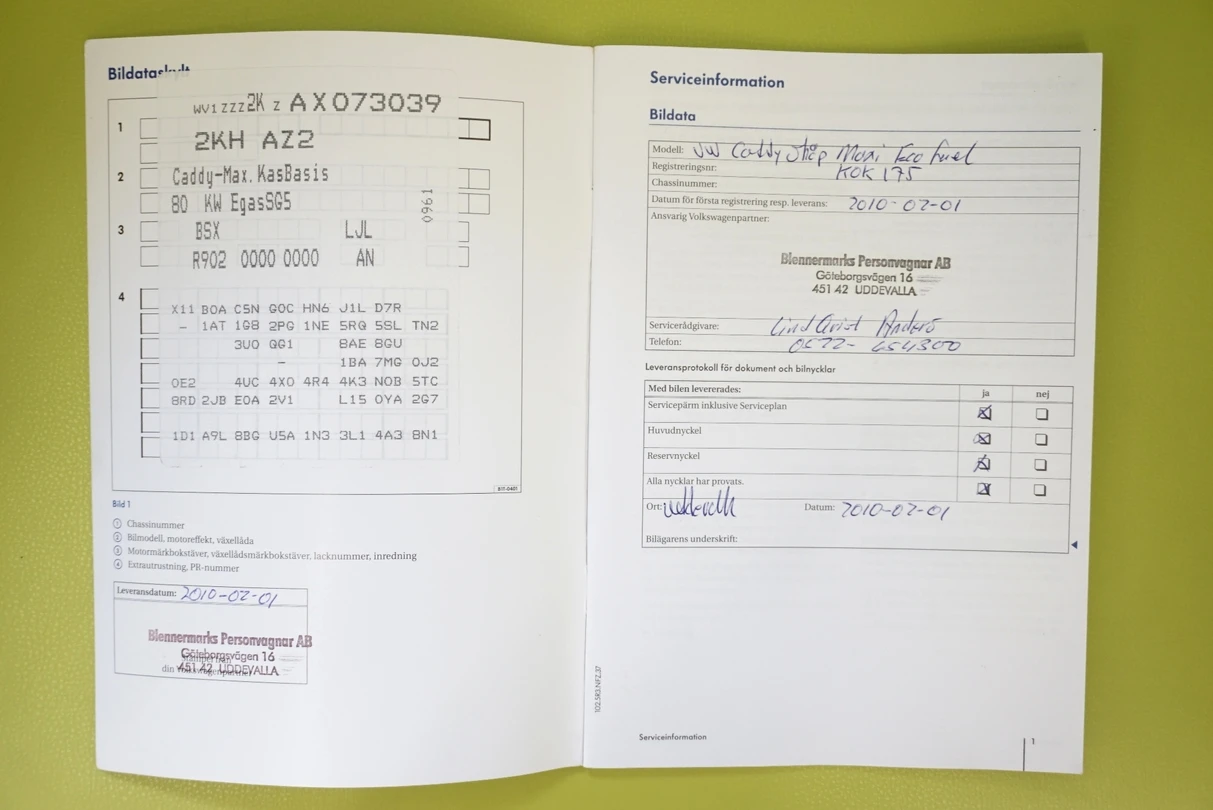 Bildataskylt
WV1ZZZ2K Z AX073039
1
2KH AZ2
2
Caddy-Max. KasBasis
80 KW EgasSG5
0961
3
BSX LJL
R902 0000 0000 AN
4
X11 B0A C5N G0C HN6 J1L D7R
- 1AT 1G8 2PG 1NE 5RQ 5SL TN2
3U0 GG1 8AE 8GU
- 1BA 7MG 0J2
0E2 4UC 4X0 4R4 4K3 N0B 5TC
8RD 2JB E0A 2V1 L15 0YA 2G7
1D1 A9L 8BG U5A 1N3 3L1 4A3 8N1
B1T-0401
Bild 1
① Chassinummer
② Bilmodell, motoreffekt, växellåda
③ Motormärkbokstäver, växellådsmärkbokstäver, lacknummer, inredning
④ Extrautrustning, PR-nummer
Leveransdatum: 2010-02-01
Blennermarks Personvagnar AB
Göteborgsvägen 16
din
451 42 UDDEVALLA
Serviceinformation
Bildata
Modell: VW Caddy Skåp Maxi Eco Fuel
Registreringsnr: KOK 175
Chassinummer:
Datum för första registrering resp. leverans: 2010-02-01
Ansvarig Volkswagenpartner:
Blennermarks Personvagnar AB
Göteborgsvägen 16
451 42 UDDEVALLA
Servicerådgivare: Lind Qvist Anders
Telefon: 0522- 654300
Leveransprotokoll för dokument och bilnycklar
Med bilen levererades: ja nej
Servicepärm inklusive Serviceplan
Huvudnyckel
Reservnyckel
Alla nycklar har provats.
Ort: Uddevalla Datum: 2010-02-01
Bilägarens underskrift:
102.5R3.NFZ.37
Serviceinformation 1